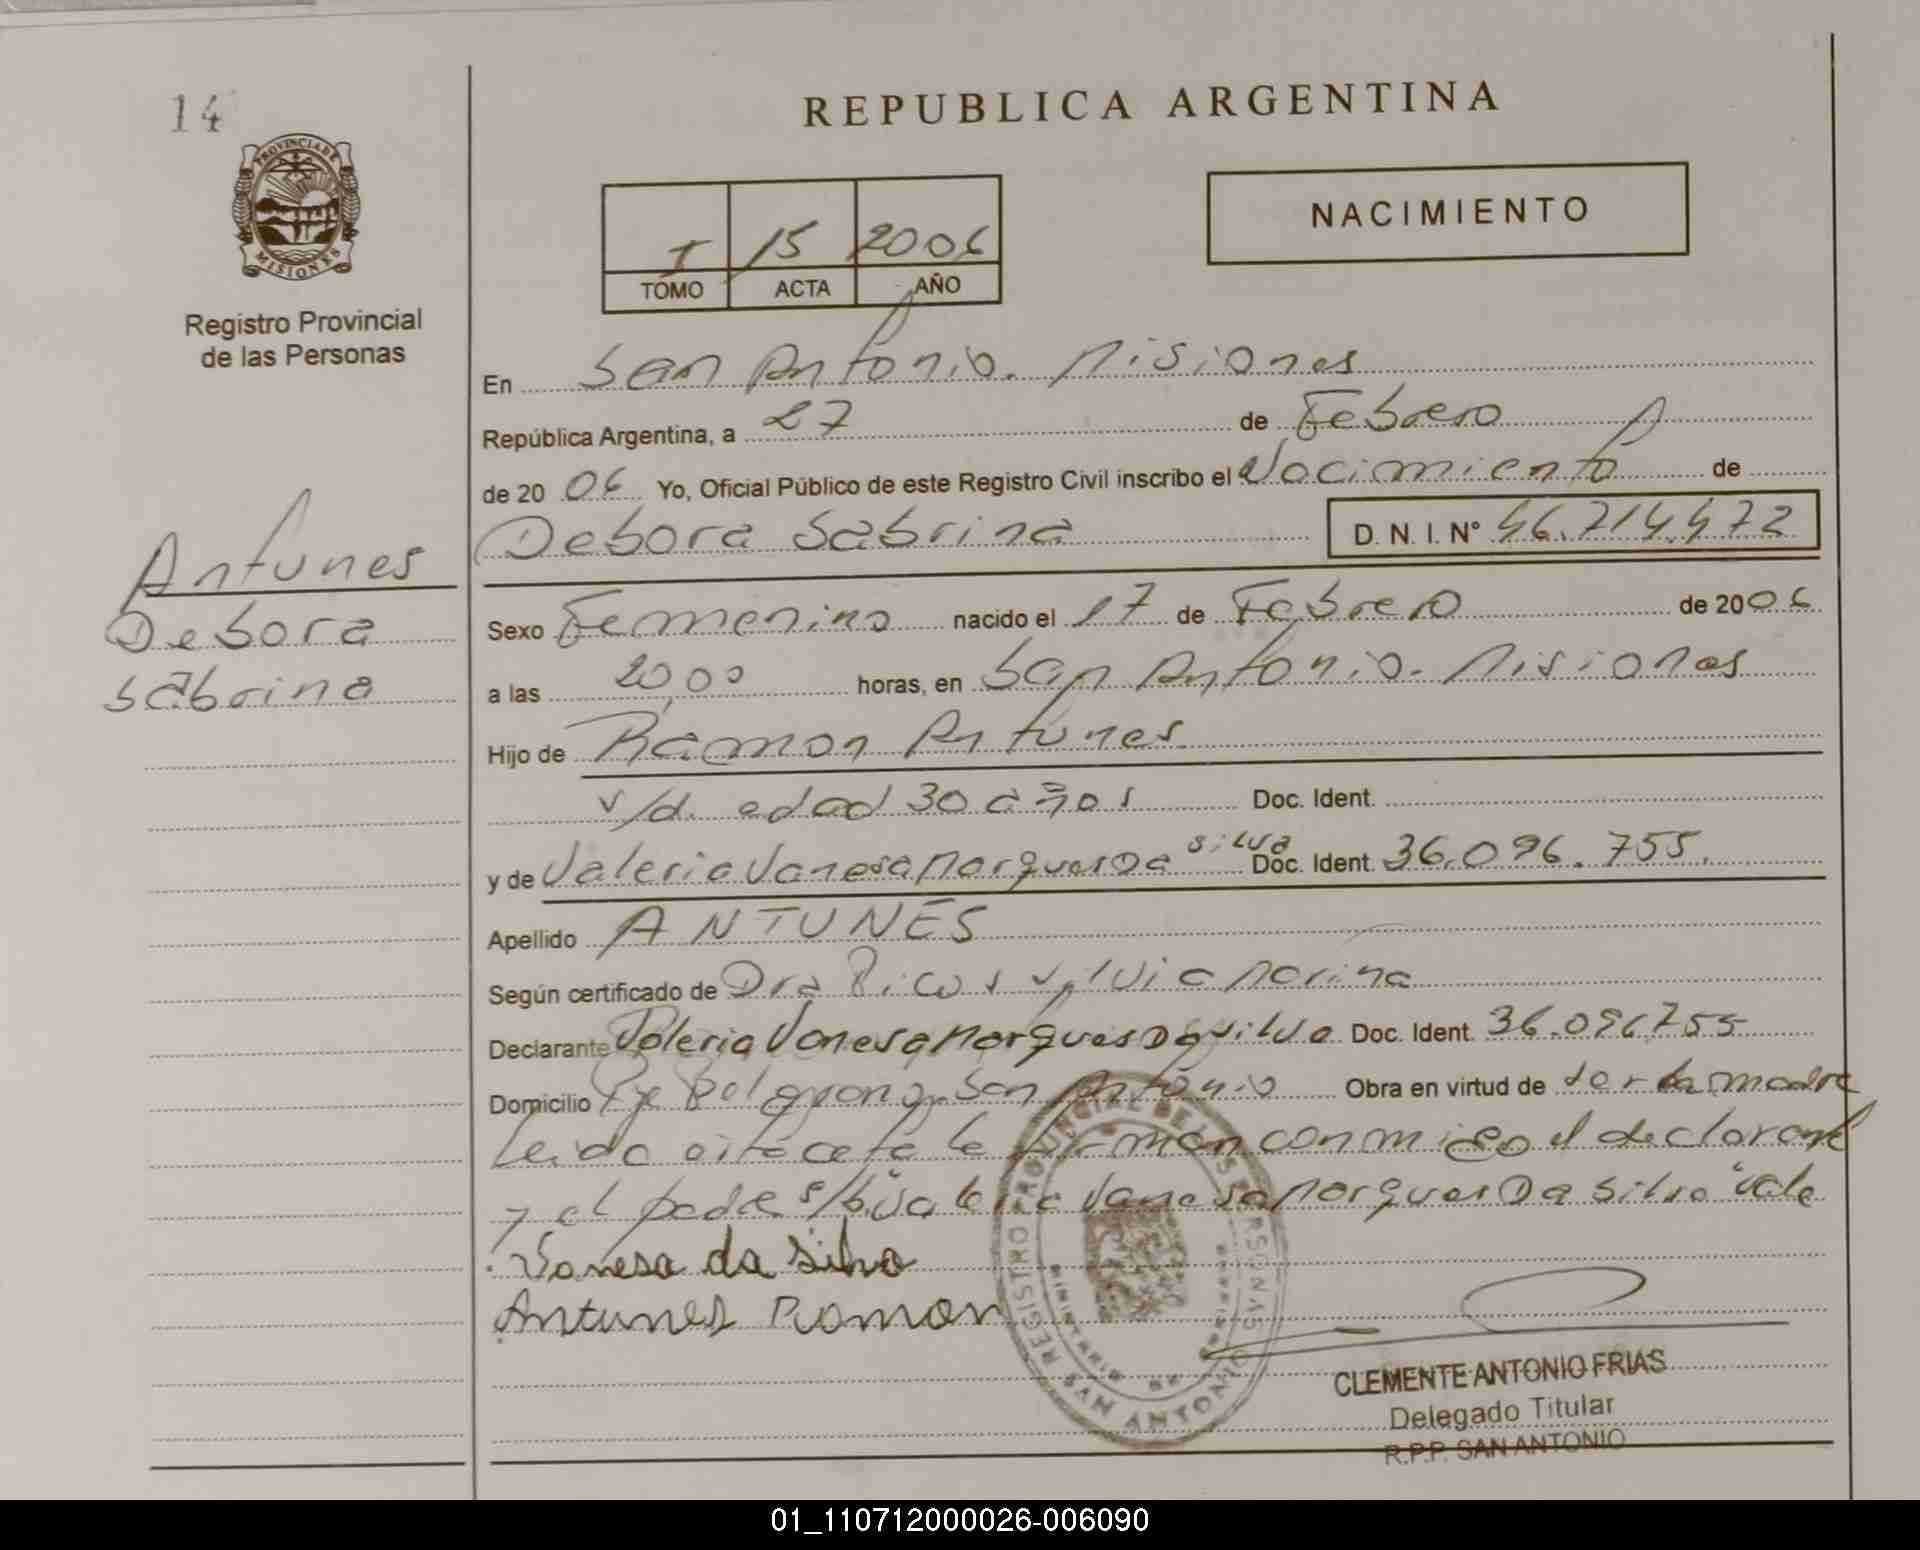 14
REPUBLICA ARGENTINA
PROVINCIA DE
MISIONES
Registro Provincial
de las Personas
I 15 2006
TOMO ACTA AÑO
NACIMIENTO
En San Antonio. Misiones
República Argentina, a 27 de Febrero
de 20 06 Yo, Oficial Público de este Registro Civil inscribo el Nacimiento de
Debora Sabrina D. N. I. N° 46.714.472
Antunes
Debora
Sabrina
Sexo Femenino nacido el 17 de Febrero de 2006
a las 20,00 horas, en San Antonio. Misiones
Hijo de Ramon Antunes
s/d. edad 30 años Doc. Ident.
y de Valeria Vanesa Marques Da silva Doc. Ident. 36.096.755.
Apellido ANTUNES
Según certificado de Dra Silvia Marina
Declarante Valeria Vanesa Marques Da Silva Doc. Ident. 36.096.755
Domicilio San Antonio Obra en virtud de ser la madre
Leida el acta la firman conmigo el declarante
y el padre s/b Vanesa Marques Da Silva "vale
Vanesa da Silva
Antunes Ramon
REGISTRO PROVINCIAL DE LAS PERSONAS
MINISTERIO DE
SAN ANTONIO
CLEMENTE ANTONIO FRIAS
Delegado Titular
R.P.P. SAN ANTONIO
01_110712000026-006090